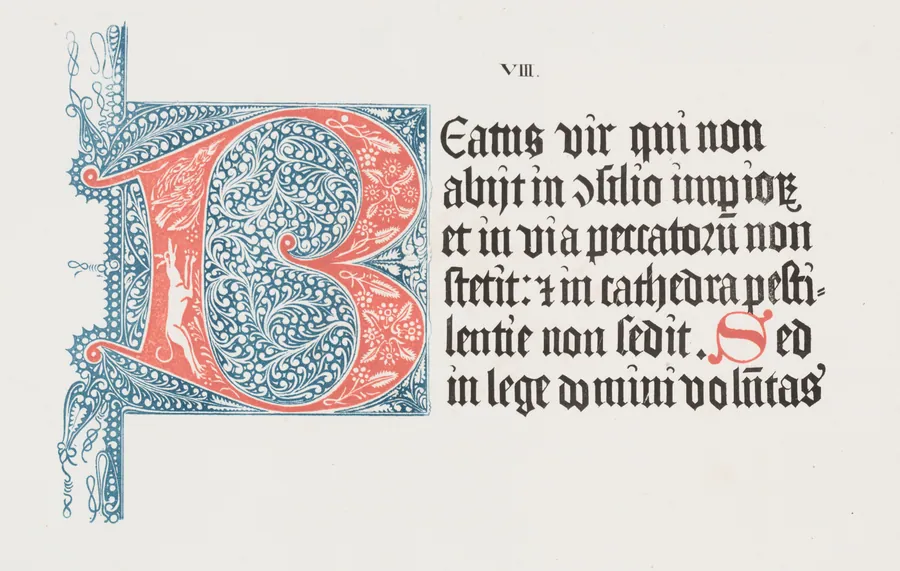 VIII.
BEatus vir qui non
abijt in ↄſilio impioꝝ
et in via peccatorū non
ſtetit: ⁊ in cathedra peſti-
lentie non ſedit. Sed
in lege domini volūtas